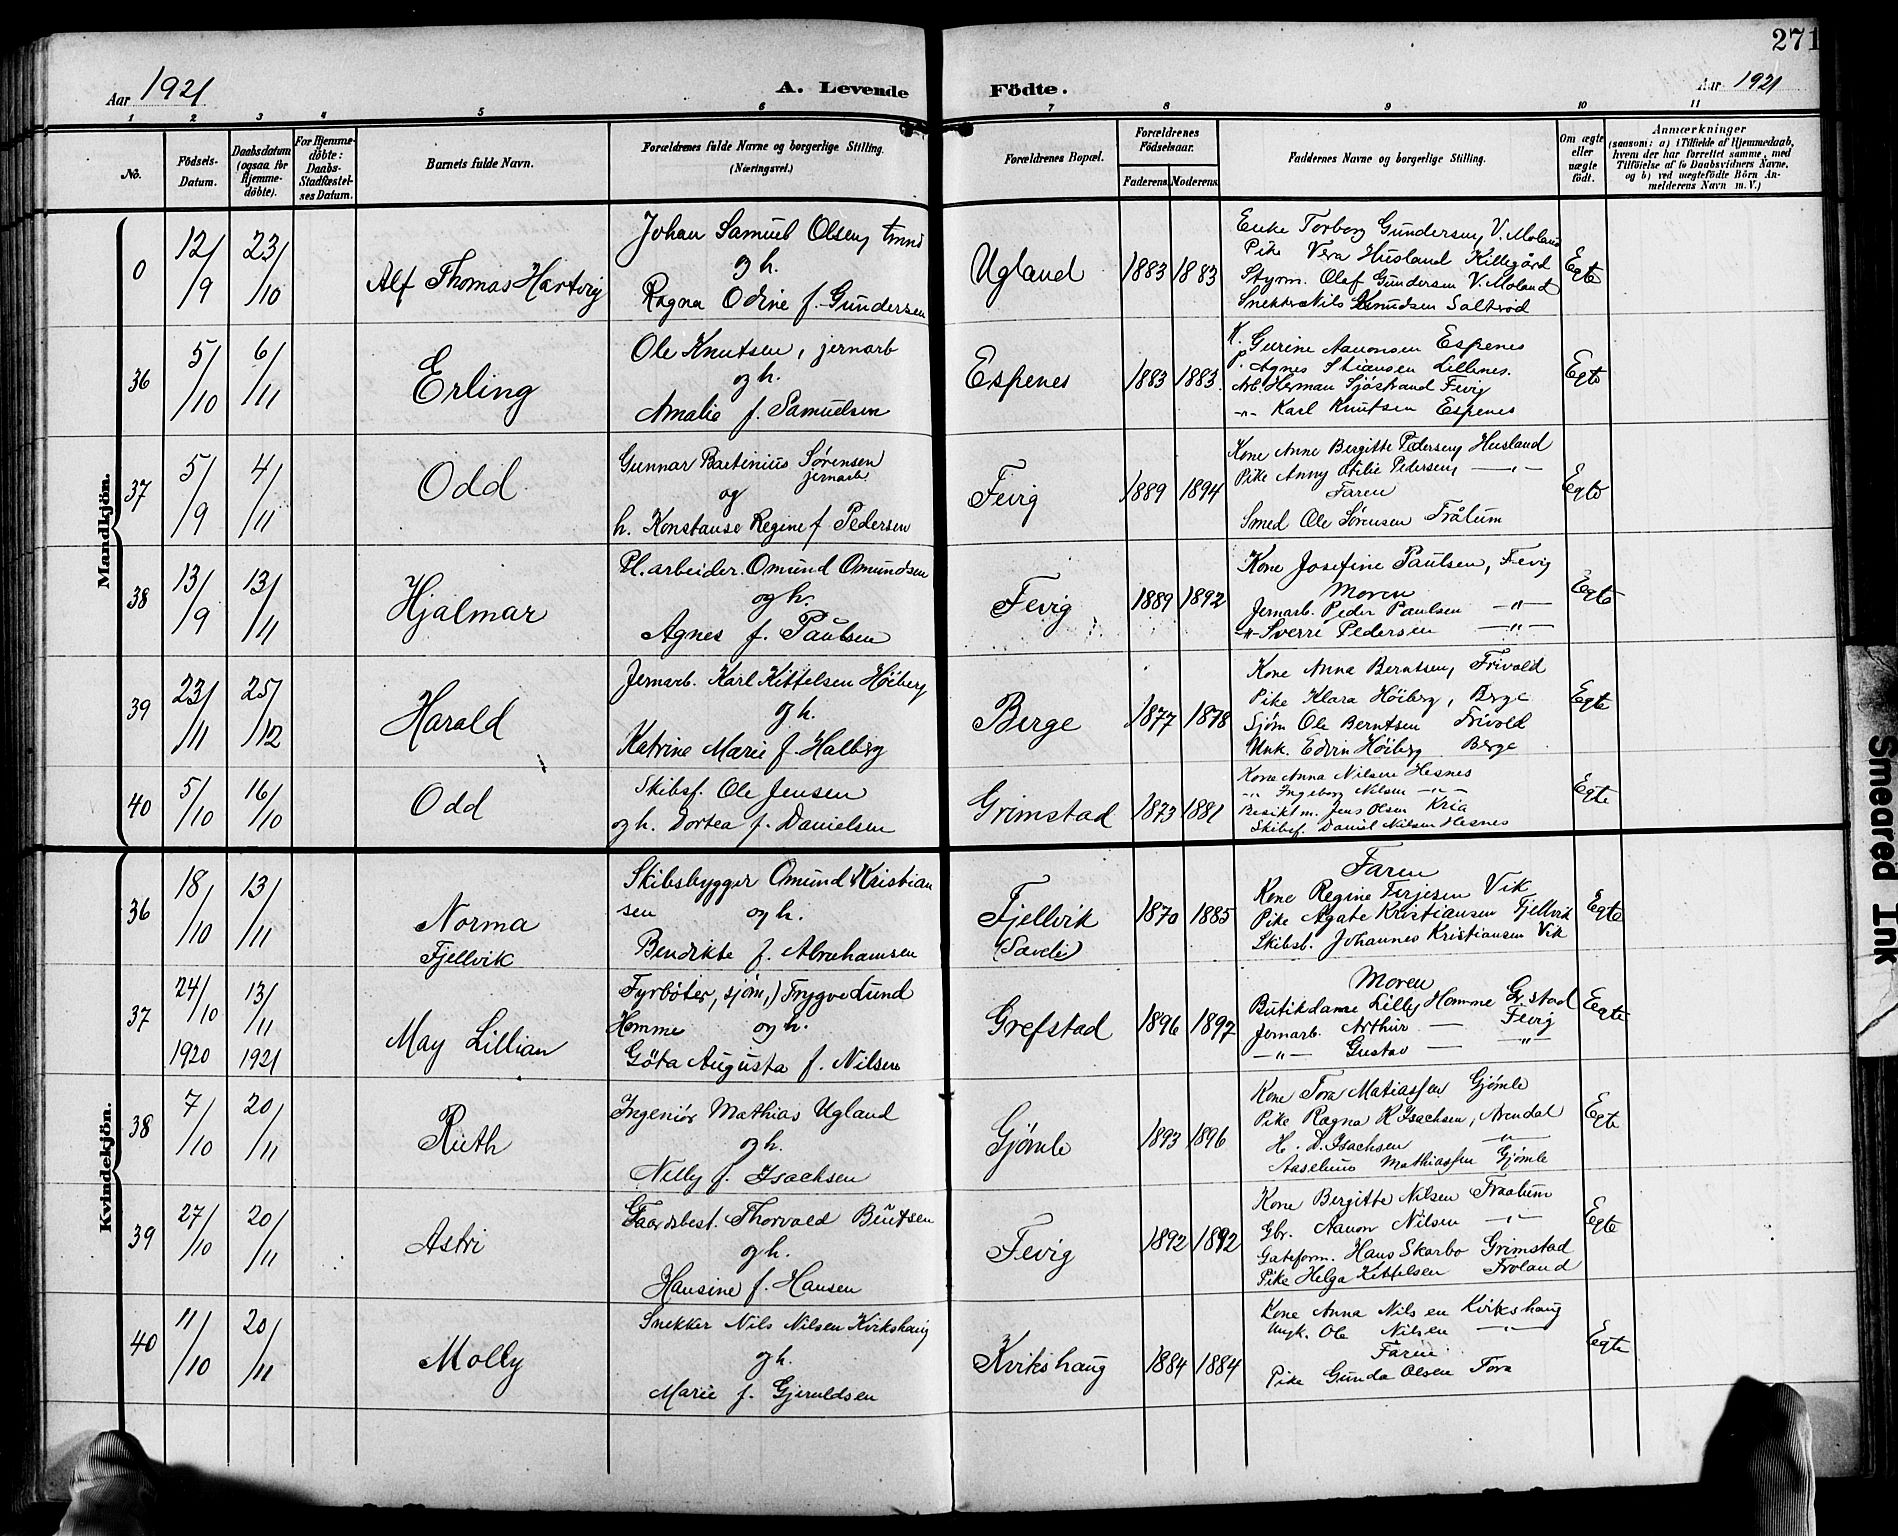 271
Aar 1921
A. Levende Födte.
Aar 1921
1 2 3 4 5 6 7 8 9 10 11
No.
Födsels-Datum.
Daabsdatum (ogsaa for Hjemmedöbte).
For Hjemmedöbte: Daabs-Stadfæstelses Datum.
Barnets fulde Navn.
Forældrenes fulde Navne og borgerlige Stilling. (Næringsvei.)
Forældrenes Bopæl.
Forældrenes Födselsaar.
Faderens. Moderens.
Faddernes Navne og borgerlige Stilling.
Om ægte eller uægte födt.
Anmærkninger
(saasom: a) i Tilfælde af Hjemmedaab, hvem der har forrettet samme, med Tilföielse af to Daabsvidners Navne, og b) ved uægtefödte Börn Anmelderens Navn m. V.)
Mandkjön.
0 12/9 23/10
Alf Thomas Hartvig
Johan Samuel Olsen, tmnd
og h.
Ragna Odine f. Gundersen
Ugland 1883 1883
Enke Torborg Gundersen, V. Moland
Pike Vera Husland Killegård
Styrm. Olaf Gundersen V. Moland
Snekker Nils Knudsen Saltrød
Egte
36 5/10 6/11
Erling
Ole Knutsen, jernarb
og h.
Amalie f. Samuelsen
Espenes 1883 1883.
K. Gurine Aanonsen Espenes
P. Agnes Stiansen Lillenes.
Arb. Herman Sjöstrand Fevig
-"- Karl Knutsen Espenes
Egte
37 5/9 4/11
Odd
Gunnar Bartinius Sørensen
jernarb.
og
h. Konstanse Regine f. Pedersen
Fevig 1889 1894
Kone Anne Bergitte Pedersen, Husland
Pike Anny Otilie Pedersen, -"-
Faren
Smed Ole Sørensen Tråtum
Egte
38 13/9 13/11
Hjalmar
Pl. arbeider. Omund Omundsen
og h.
Agnes f. Paulsen
Fevig 1889 1892
Kone Josefine Paulsen, Fevig
Moren
Jernarb. Peder Paulsen -"-
-"- Sverre Pedersen -"-
Egte
39 23/11 25/12
Harald
Jernarb. Karl Kittelsen Höiberg
og h.
Katrine Marie f. Halberg
Berge 1877 1878
Kone Anna Berntsen, Frivold
Pike Klara Höiberg, Berge
Sjöm Ole Berntsen Frivold
Unk. Edvin Höiberg Berge
Egte
40 5/10 16/10
Odd
Skibsf. Ole Jensen
og h. Dortea f. Danielsen
Grimstad 1873 1881
Kone Anna Nilsen Hesnes
-"- Ingeborg Nilsen -"-
Besiktm. Jens Olsen Kria
Skibsf. Daniel Nilsen Hesnes
Egte
Kvindekjön.
36 18/10 13/11
Norma
Fjellvik
Skibsbygger Omund Kristian
sen og h.
Bendikte f. Abrahamsen
Fjellvik
(Savli)
1870 1885
Faren
Kone Regine Terjesen Vik
Pike Agate Kristiansen Fjellvik
Skibsb. Johannes Kristiansen Vik
Egte
37 24/10 13/11
1920 1921
May Lillian
Fyrböter, sjöm,) Trygve Lund
Homme og h.
Göta Augusta f. Nilsen
Grefstad 1896 1897
Moren
Butikdame Lilly Homme Gr.stad
Jernarb. Arthur — Fevig
-"- Gustav — -"-
Egte
38 7/10 20/11
Ruth
Ingeniör Mathias Ugland
og h.
Nilly f. Isachsen
Gjømle 1893 1896
Kone Tora Matiassen Gjømle
Pike Ragna R Isachsen, Arendal
H. D. Isachsen -"-
Aaselino Mathiassen Gjømle
Egte
39 27/10 20/11
Astri
Gaardsbest. Thorvald Bentsen
og h.
Hansine f. Hansen
Fevig 1892 1892
Kone Bergitte Nilsen Traatum
Gbr. Aanon Nilsen -"-
Gateform. Hans Skarbo Grimstad
Pike Helga Kittelsen Froland
Egte
40 11/10 20/11
Molly
Snekker Nils Nilsen Kvikshaug
og h.
Marie f. Gjeruldsen
Kvikshaug 1884 1884
Kone Anna Nilsen Kvikshaug
Ungk. Ole Nilsen -"-
Faren
Pike Gunda Olsen Tora
Egte
Smeared Ink